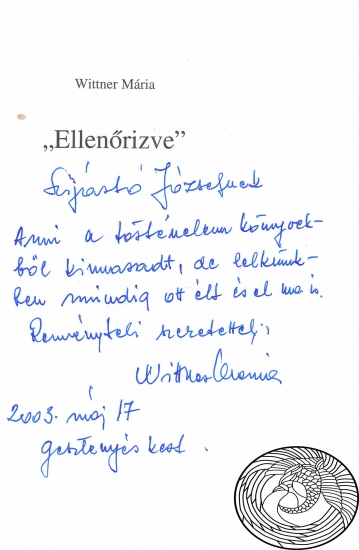 Wittner Mária
„Ellenőrizve”
Szijártó Józsefnek
Ami a történelem könyvek-
ből kimaradt, de lelkünk-
ben mindig ott élt és él ma is.
Reményteli szeretettel;
Wittner Mária
2003. máj 17
Gesztenyés kert.